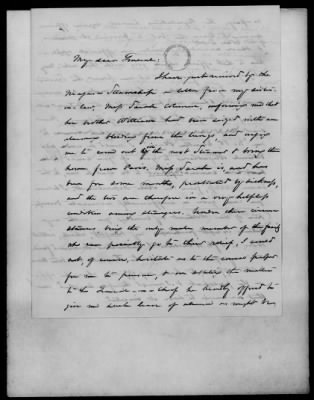 My dear General:
I have just received by the
Niagara Steamship a letter from my sister-
in-law, Miss Sarah Coleman, informing me that
her brother William had been seized with an
alarming bleeding from the lungs, and urging
me to come out by the next Steamer & bring them
home from Paris. Miss Sarah is, and has
been for some months, prostrated by sickness,
and the two are therefore in a very helpless
condition among strangers. Under these circum-
stances, being the only male member of the family
who can possibly go to their relief, I could
not, of course, hesitate as to the course proper
for me to pursue, & on stating the matter
to the General-in-Chief he kindly offered to
give me such leave of absence as might be